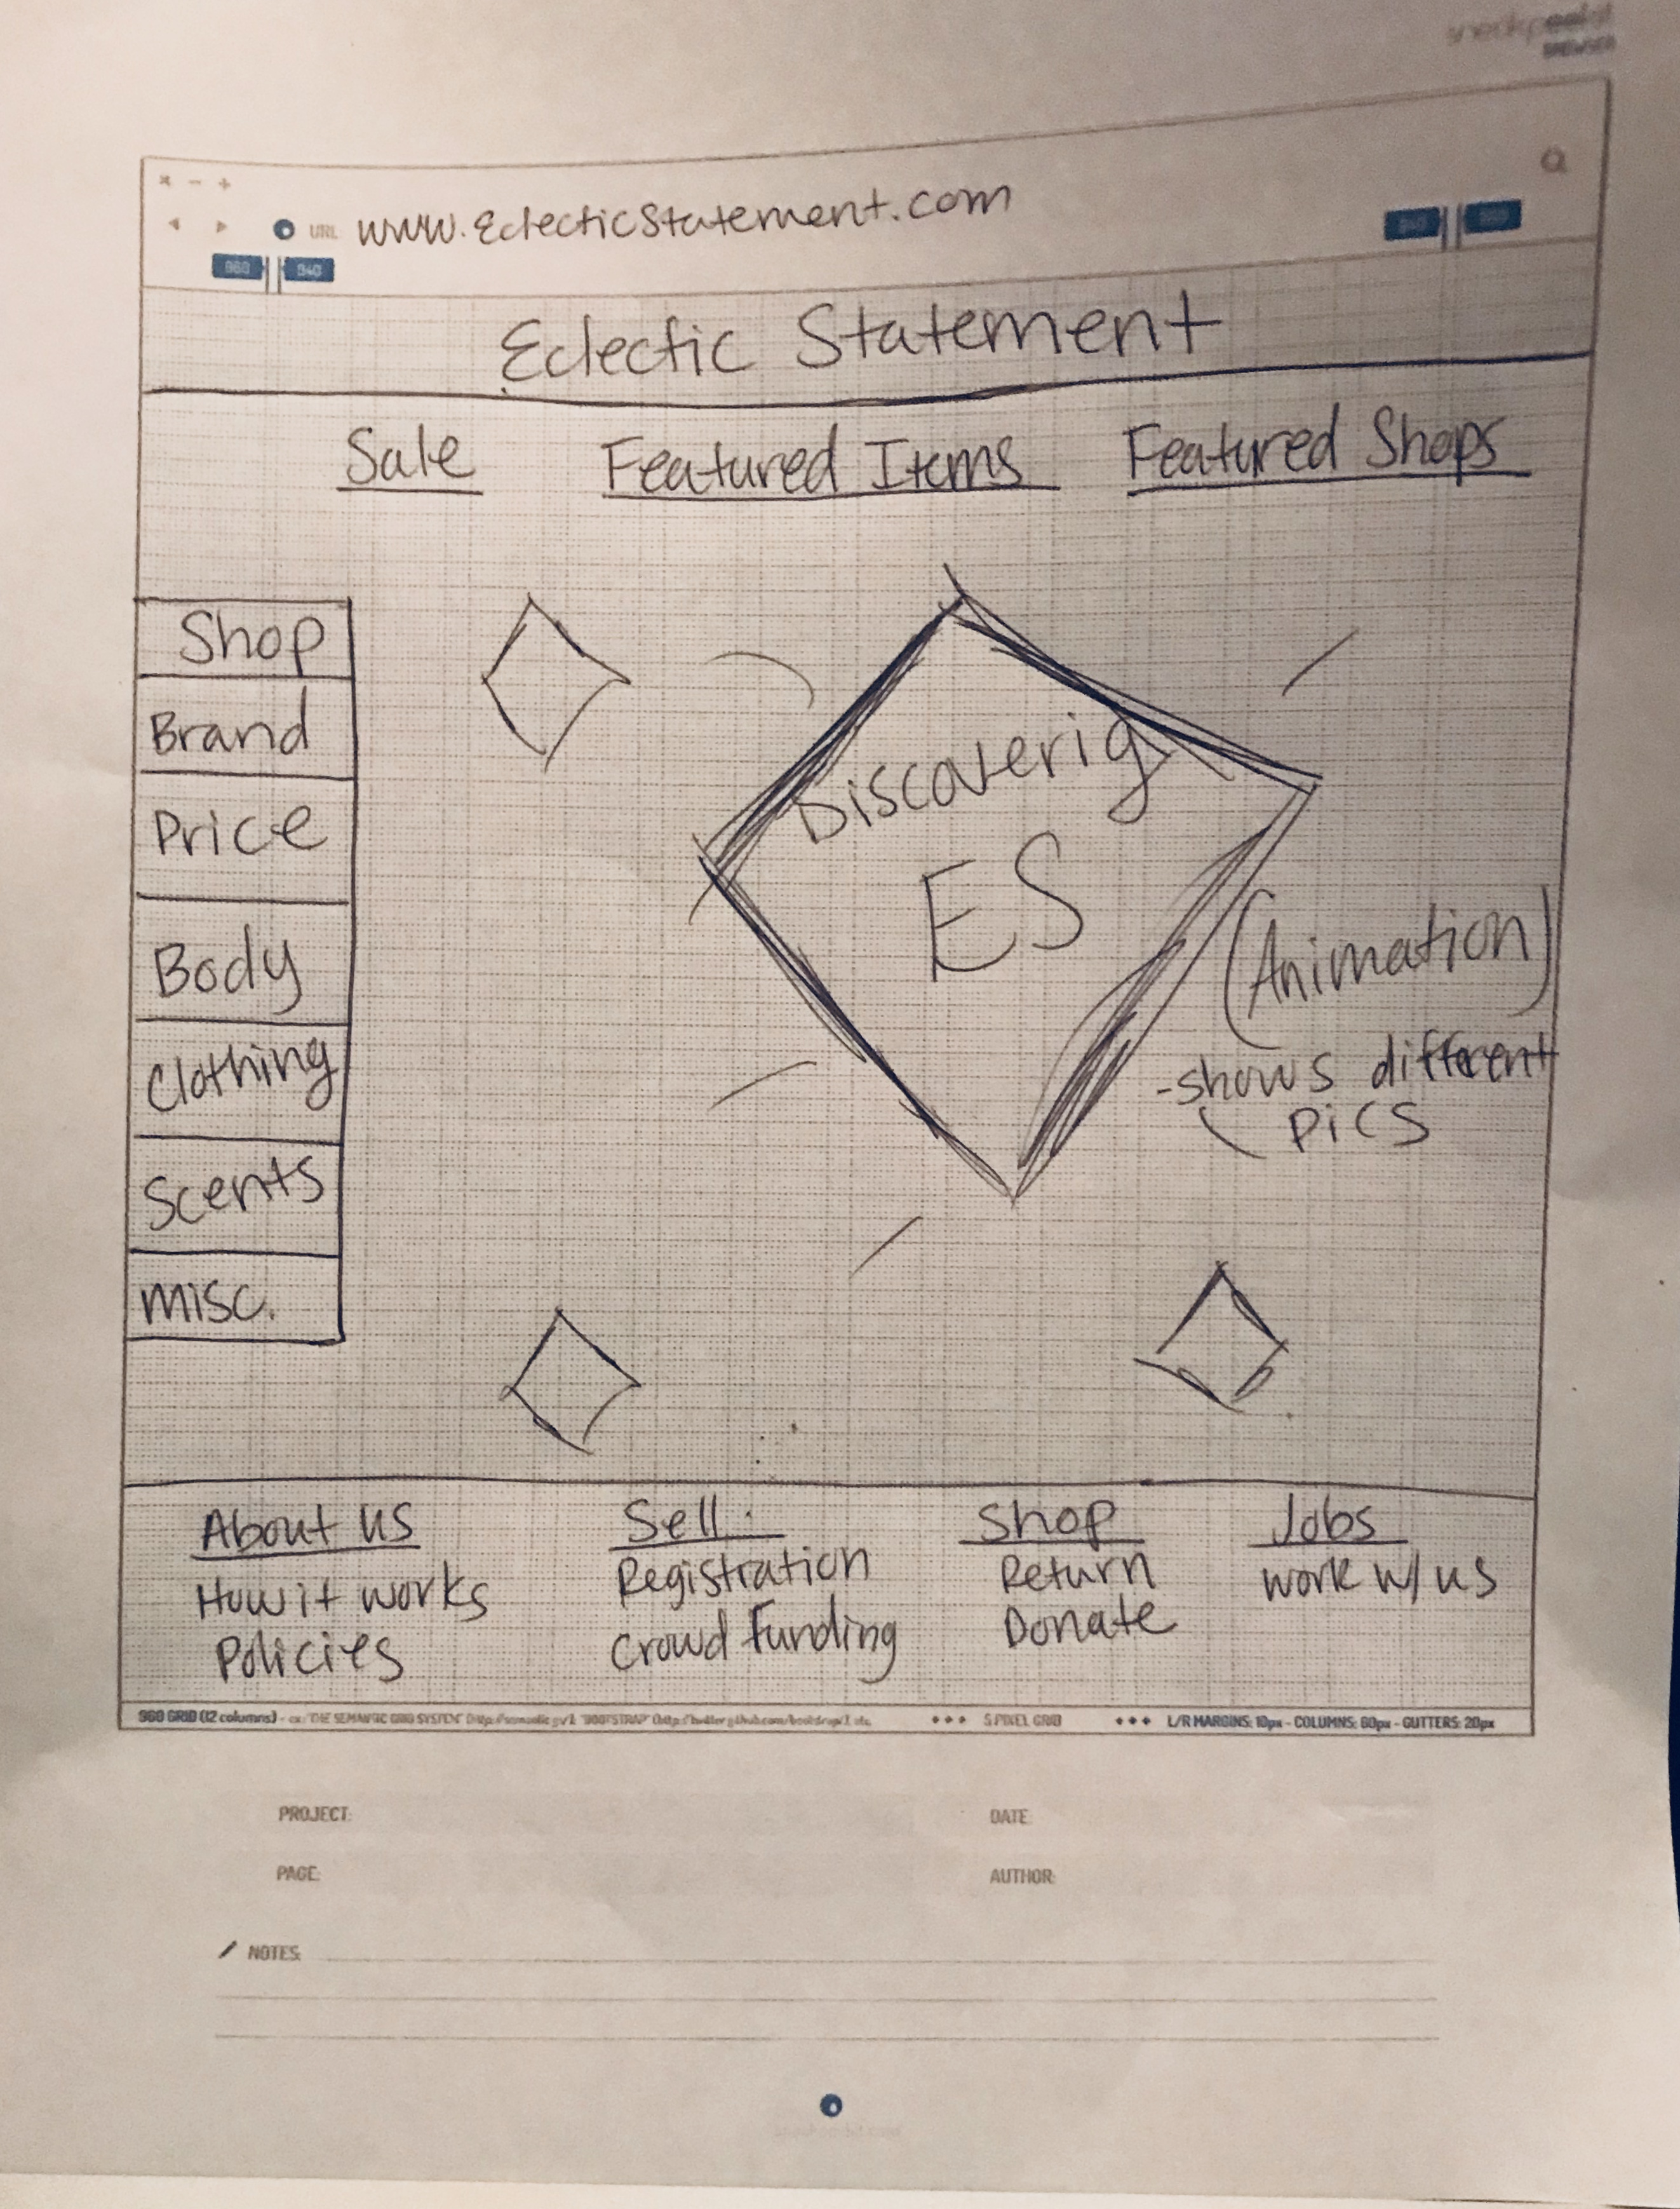 BROWSER
URL www.EclecticStatement.com
960 940
Eclectic Statement
Sale Featured Items Featured Shops
Shop
Brand
Price
Body
Clothing
Scents
misc.
Discoverig
ES
(Animation)
-shows different
pics
About us
How it works
Policies
Sell
Registration
Crowd Funding
Shop
Return
Donate
Jobs
work w/ us
960 GRID (12 columns) - ex: "THE SEMANTIC GRID SYSTEM" "BOOTSTRAP" 5 PIXEL GRID L/R MARGINS: 10px - COLUMNS: 60px - GUTTERS: 20px
PROJECT: DATE:
PAGE: AUTHOR:
NOTES: